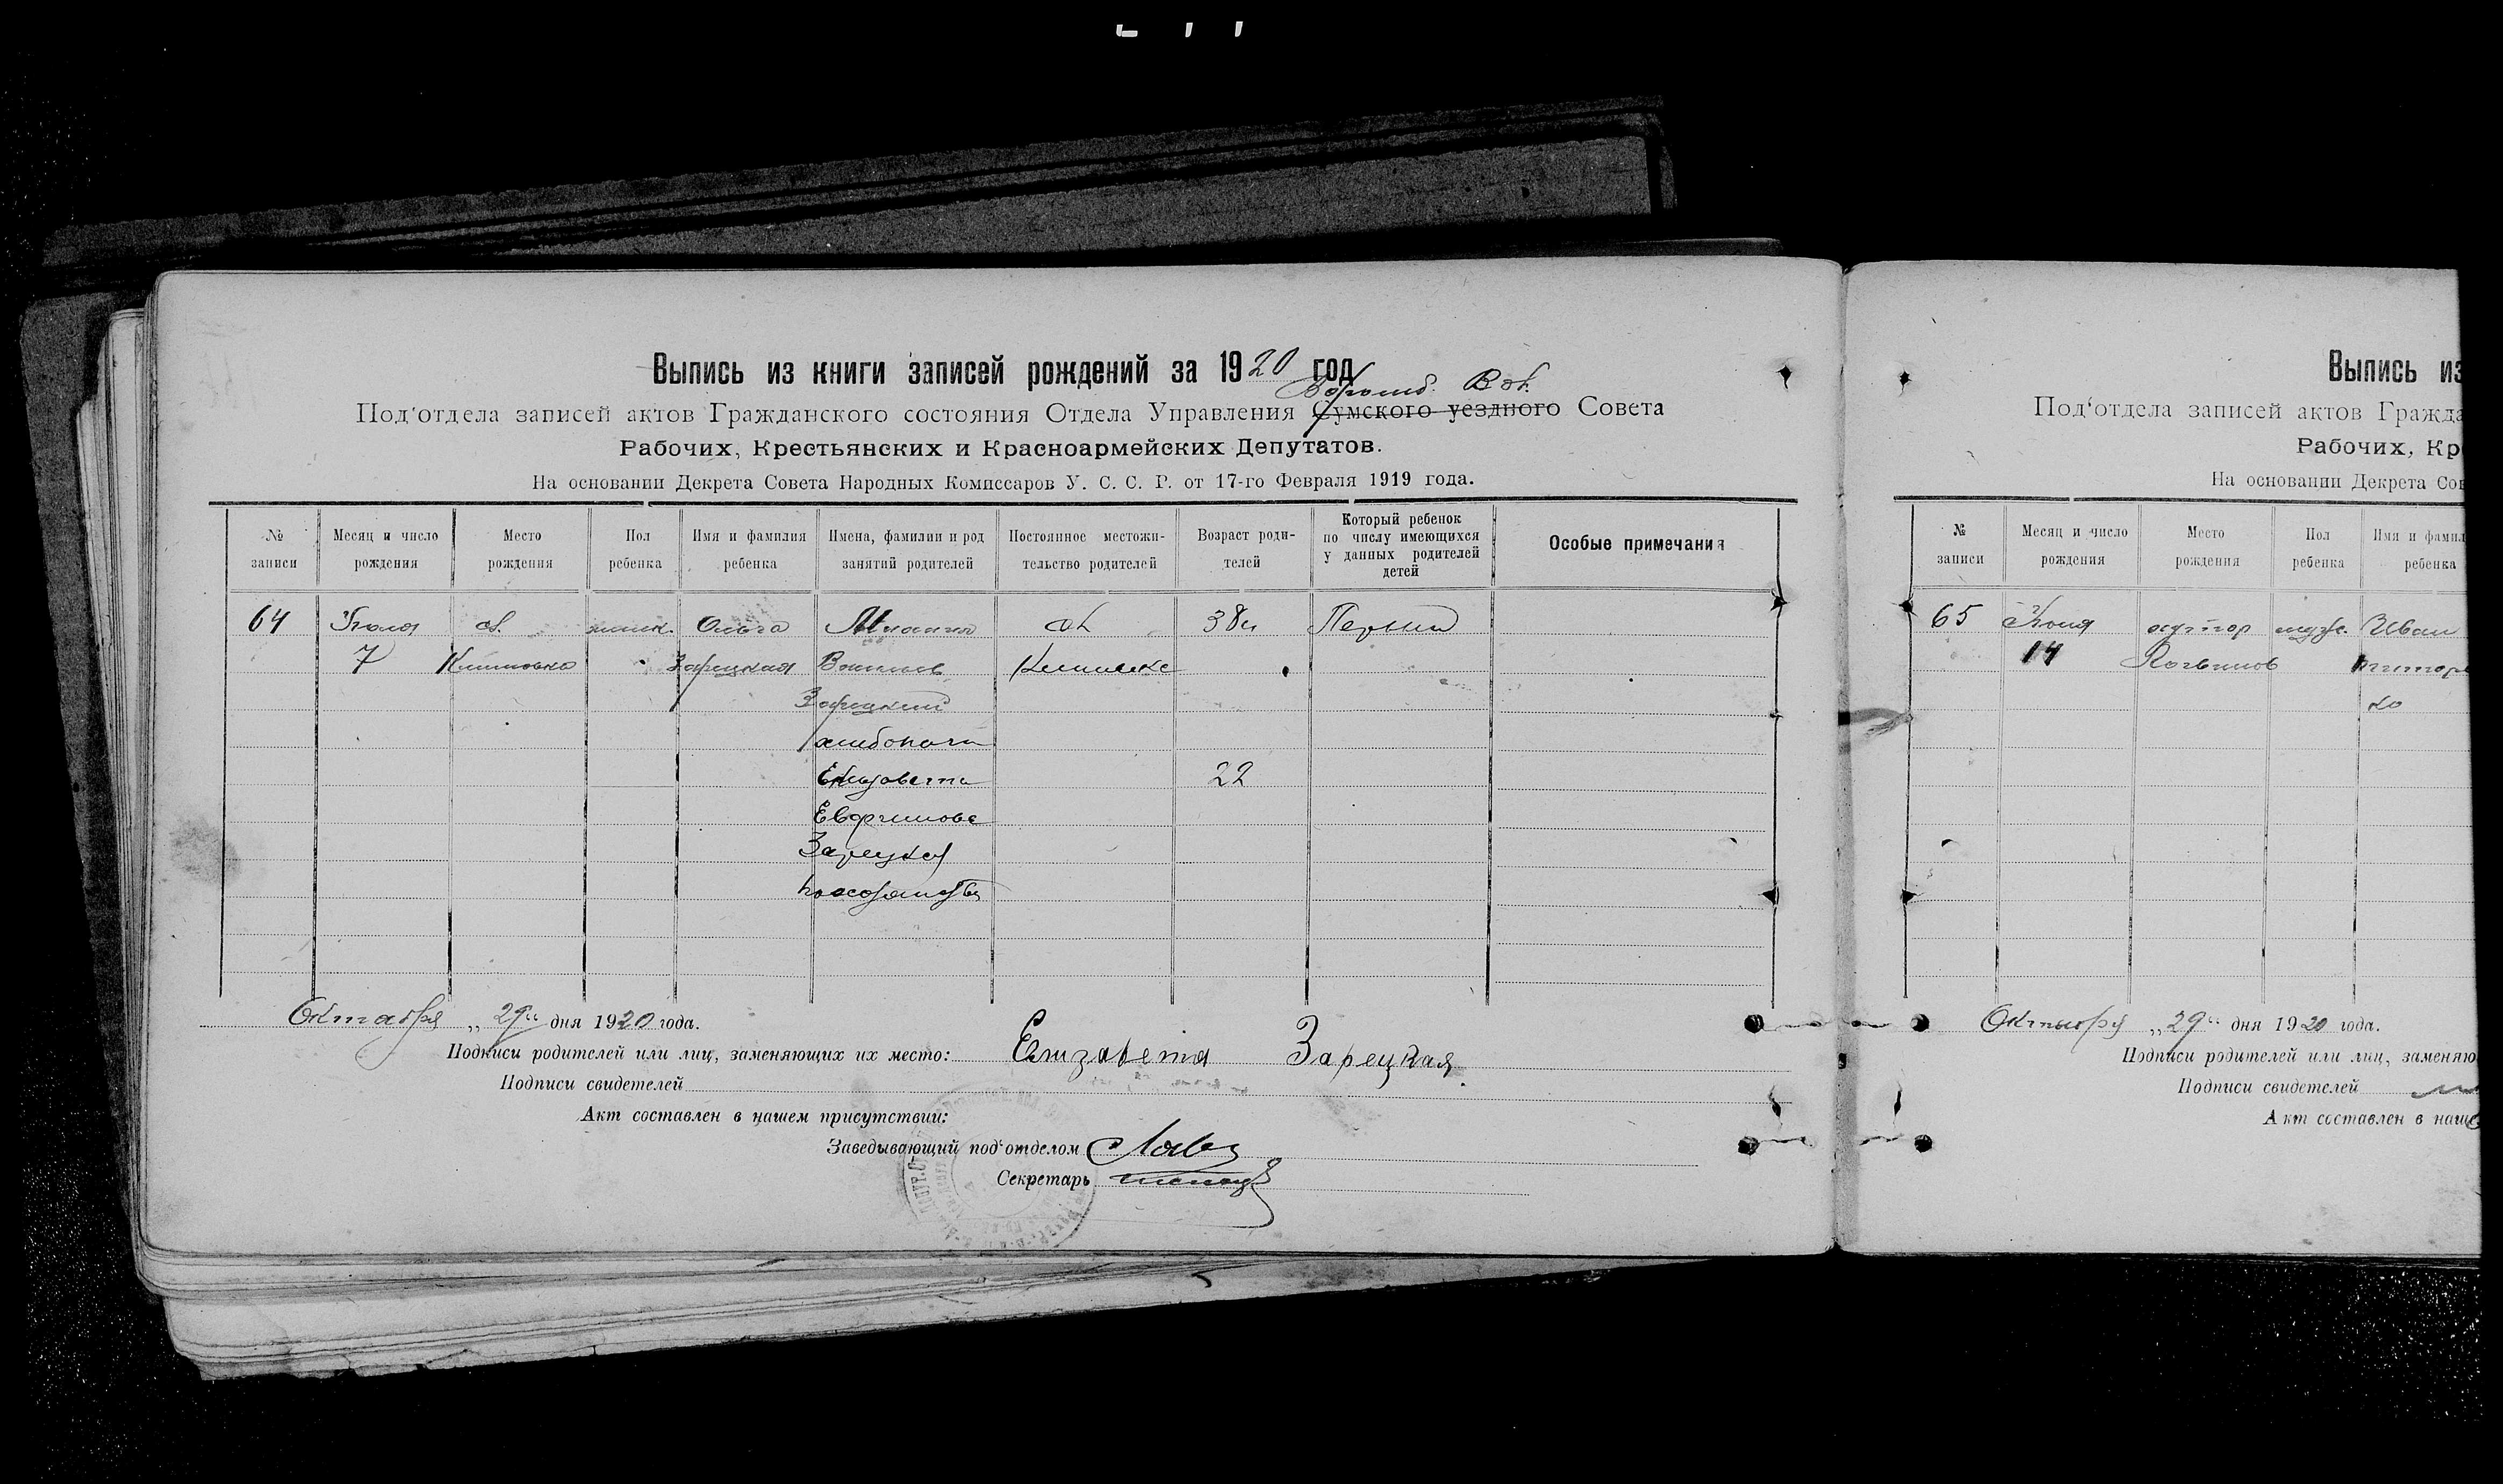 Выпись из книги записей рождений за 1920 год
Ворожб. Вол.
Под'отдела записей актов Гражданского состояния Отдела Управления Сумского уездного Совета
Рабочих, Крестьянских и Красноармейских Депутатов.
На основании Декрета Совета Народных Комиссаров У. С. С. Р. от 17-го Февраля 1919 года.
№ записи
Месяц и число рождения
Место рождения
Пол ребенка
Имя и фамилия ребенка
Имена, фамилии и род занятий родителей
Постоянное местожительство родителей
Возраст родителей
Который ребенок по числу имеющихся у данных родителей детей
Особые примечания
64 с. женск. Ольга с. 38
7 Зарецкая
Зарецкий
Елизавета 22
Зарецкая
Октября „ 29 “ дня 1920 года.
Подписи родителей или лиц, заменяющих их место: Елизавета Зарецкая.
Подписи свидетелей
Акт составлен в нашем присутствии:
Заведывающий под'отделом
Секретарь
Выпись из
Под'отдела записей актов Гражда
Рабочих, Кр
На основании Декрета Сов
№ записи
Месяц и число рождения
Место рождения
Пол ребенка
Имя и фамил
ребенка
65 хутор муж. Иван
14
ко
Октября „ 29 “ дня 1920 года.
Подписи родителей или лиц, заменяю
Подписи свидетелей
Акт составлен в наше